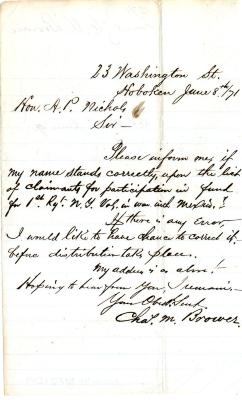 23 Washington St.
Hoboken June 8th/71
Hon. A. P. Nichols
Sir—
Please inform me, if
my name stands correctly, upon the list
of claimants for participation in fund
for 1st Rgt. N. Y. Vols, in war with Mexico.?
If there is any Error,
I would like to have chance to correct it
before distribution takes place.
My address is as above!—
Hoping to hear from You, I remain.—
Your Obdt Servt
Chas. M. Brower.